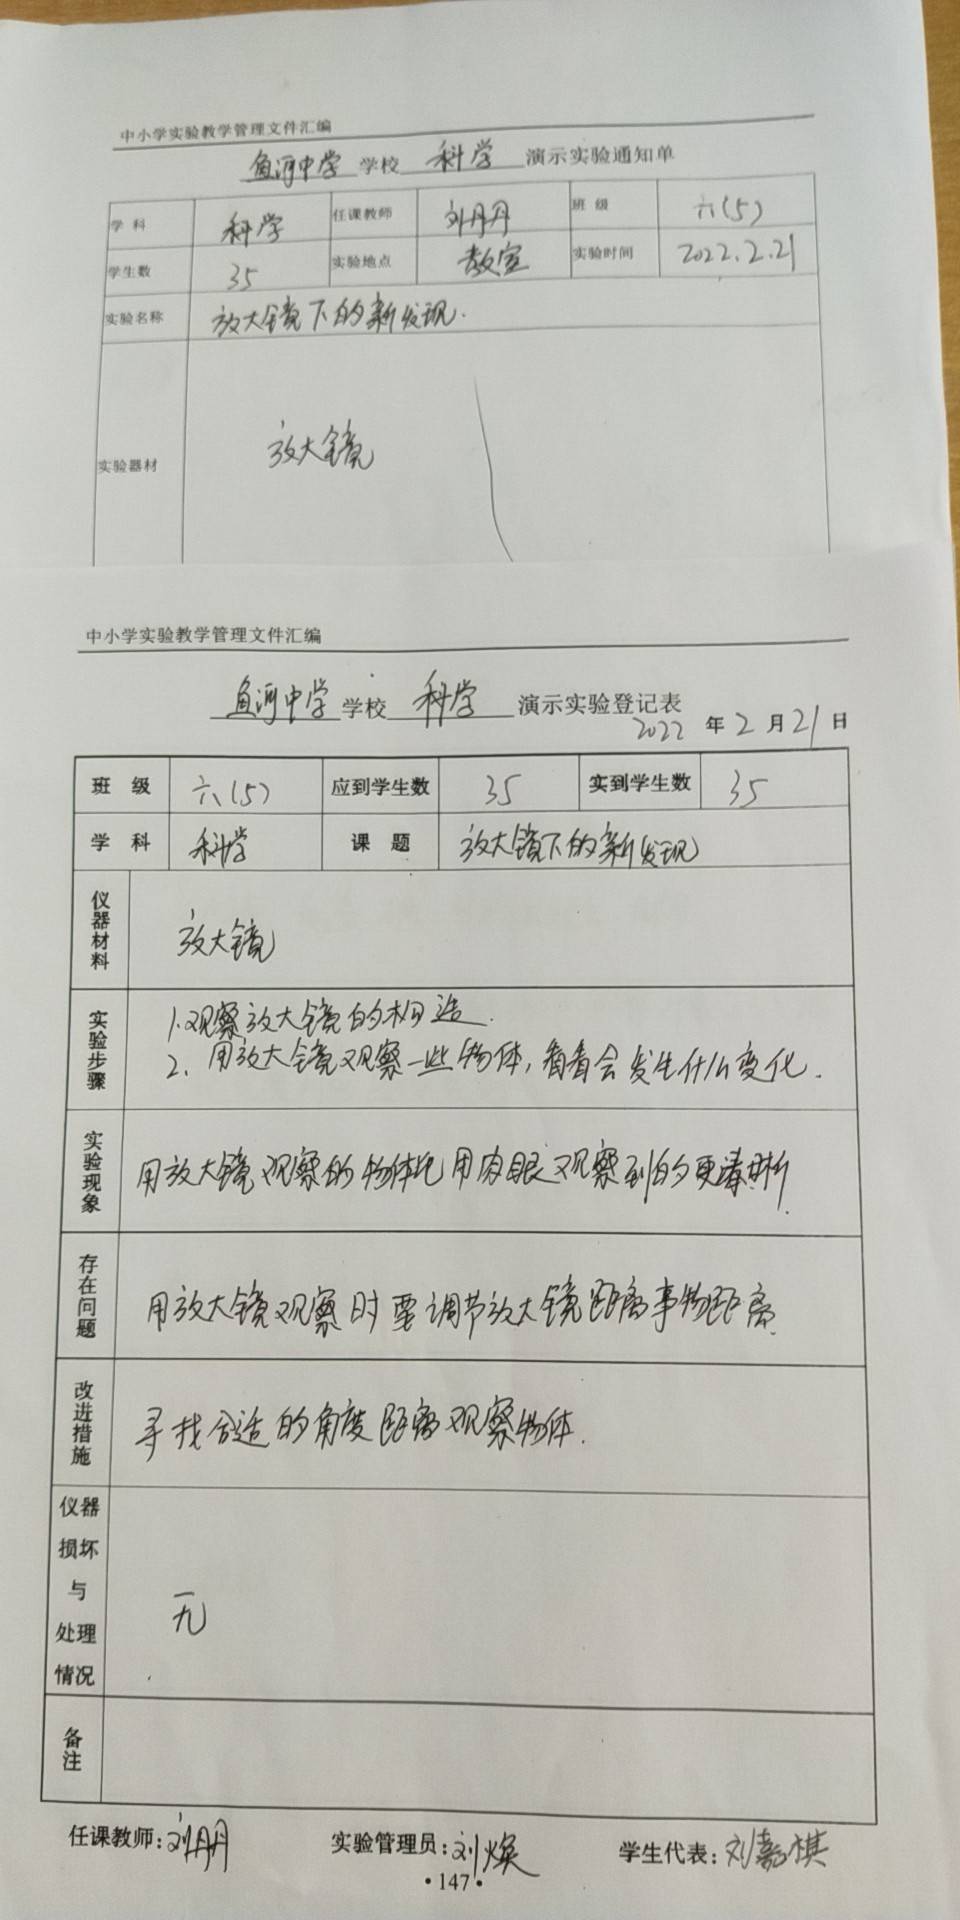 中小学实验教学管理文件汇编
鱼河中学 学校 科学 演示实验通知单
学 科 科学 任课教师 刘丹丹 班 级 六(5)
学生数 35 实验地点 教室 实验时间 2022.2.21
实验名称 放大镜下的新发现.
实验器材 放大镜
中小学实验教学管理文件汇编
鱼河中学 学校 科学 演示实验登记表
2022 年 2 月 21 日
班 级 六(5) 应到学生数 35 实到学生数 35
学 科 科学 课 题 放大镜下的新发现
仪器材料 放大镜
实验步骤 1.观察放大镜的构造.
2、用放大镜观察一些物体,看看会发生什么变化.
实验现象 用放大镜观察的物体比用肉眼观察到的更清晰.
存在问题 用放大镜观察时要调节放大镜距离事物距离.
改进措施 寻找合适的角度距离观察物体.
仪器损坏与处理情况 无
备注
任课教师:刘丹丹 实验管理员:刘焕 学生代表:刘嘉棋
·147·